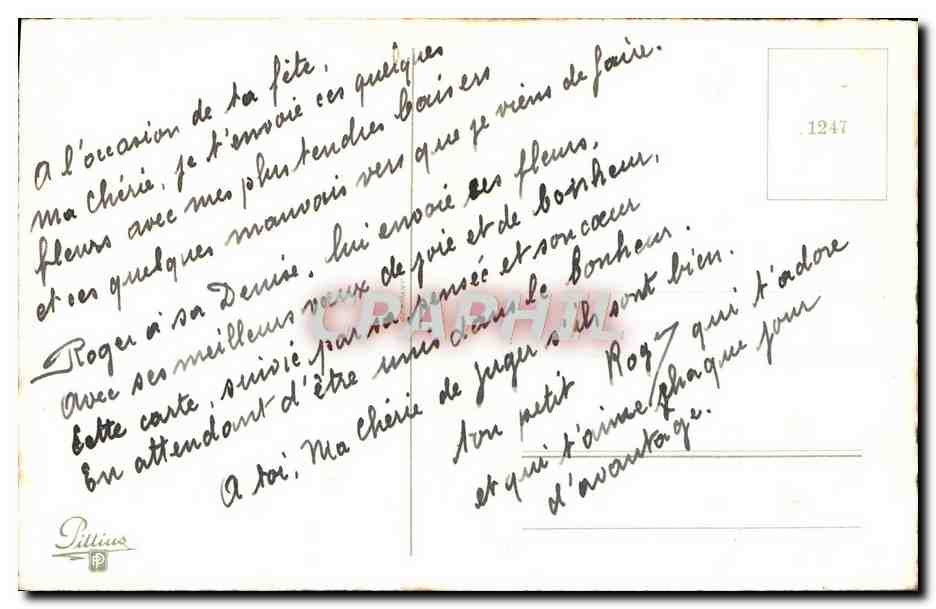 A l'occasion de ta fête,
ma chérie, je t'envoie ces quelques
fleurs avec mes plus tendres baisers
et ces quelques mauvais vers que je viens de faire.
Roger à sa Denise. lui envoie ses fleurs,
Avec ses meilleurs vœux de joie et de bonheur,
Cette carte, suivie par sa pensée et son cœur
En attendant d'être unis dans le bonheur.
A toi, Ma chérie de juger s'ils sont bien.
ton petit Roger qui t'adore
et qui t'aime chaque jour
d'avantage.
1247
CARPHIL
Pittius